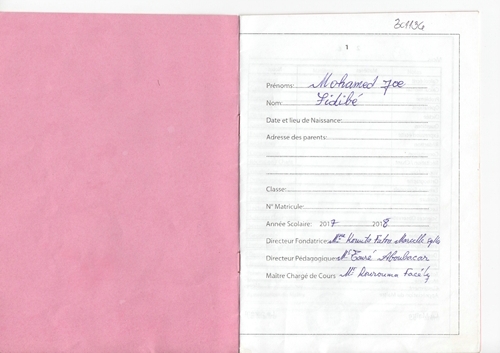 30119G
1
Prénoms: Mohamed Joe
Nom: Sidibé
Date et lieu de Naissance:
Adresse des parents:
Classe:
N° Matricule:
Année Scolaire: 2017 2018
Directeur Fondatrice: Mme Kourouma Fatou Marcelle
Directeur Pédagogique Mr Touré Aboubacar
Maître Chargé de Cours Mr Kourouma Facély